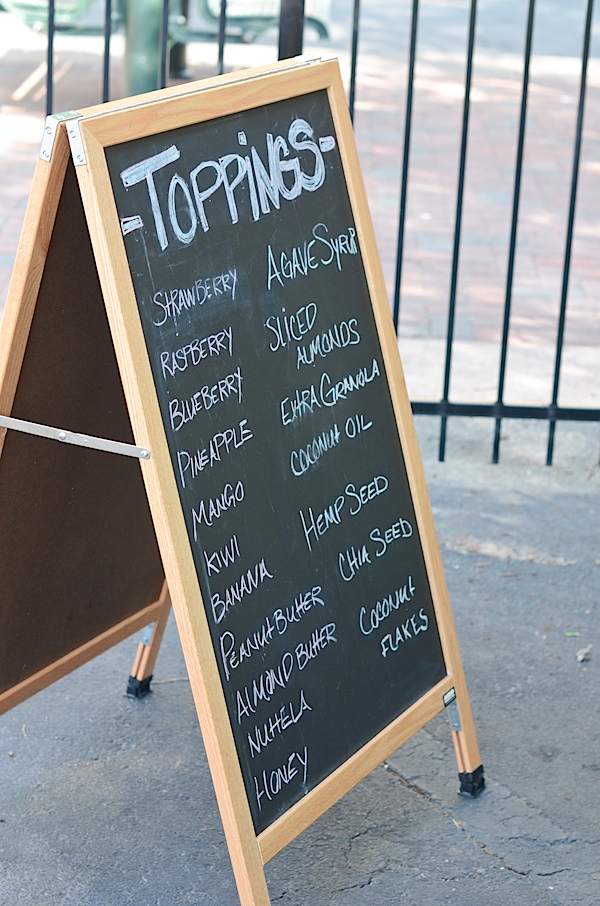 -TOPPINGS-
STRAWBERRY
RASPBERRY
BLUEBERRY
PINEAPPLE
MANGO
KIWI
BANANA
PEANUT BUTTER
ALMOND BUTTER
NUTELLA
HONEY
AGAVE SYRUP
SLICED
ALMONDS
EXTRA GRANOLA
COCONUT OIL
HEMP SEED
CHIA SEED
COCONUT
FLAKES